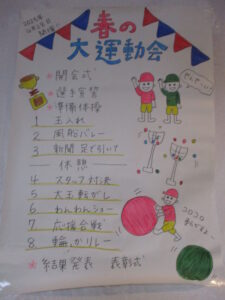 春の
大運動会
*開会式
*選手宣誓
*準備体操
1 玉入れ
2 風船バレー
3 新聞足で引いて
休憩
4 スタッフ対決
5 大玉転がし
6 わんわんショー
7 応援合戦
8 輪っかリレー
*結果発表 表彰式